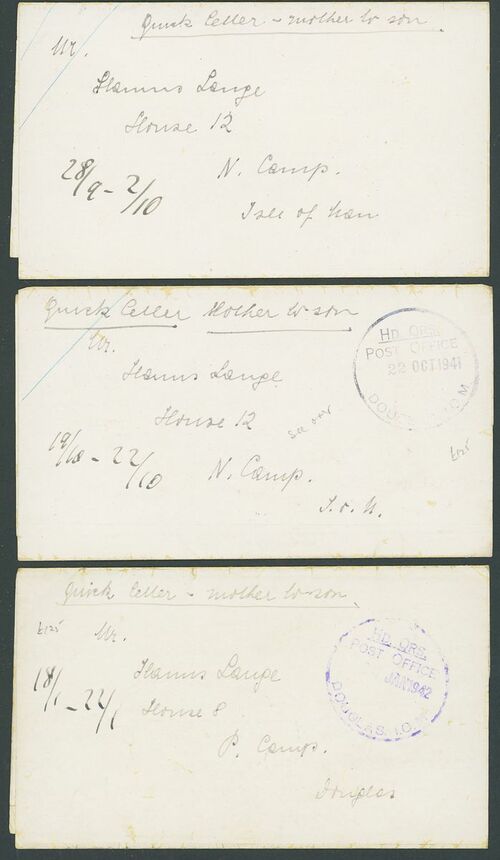 Quick letter - mother to son.
Mr.
Hanns Lange
House 12
28/9 - 2/10
N. Camp.
Isle of Man
Quick letter Mother to son
HD. QRS.
POST OFFICE
22 OCT 1941
DOUGLAS. I.O.M.
Mr.
Hanns Lange
House 12
see over
19/10 - 22/10
N. Camp.
I. o. M.
£125
Quick letter - mother to son.
£125
HD. QRS.
POST OFFICE
JAN 1942
DOUGLAS. I.O.M.
Mr.
Hanns Lange
18/1 - 22/1
House 8
P. Camp.
Douglas